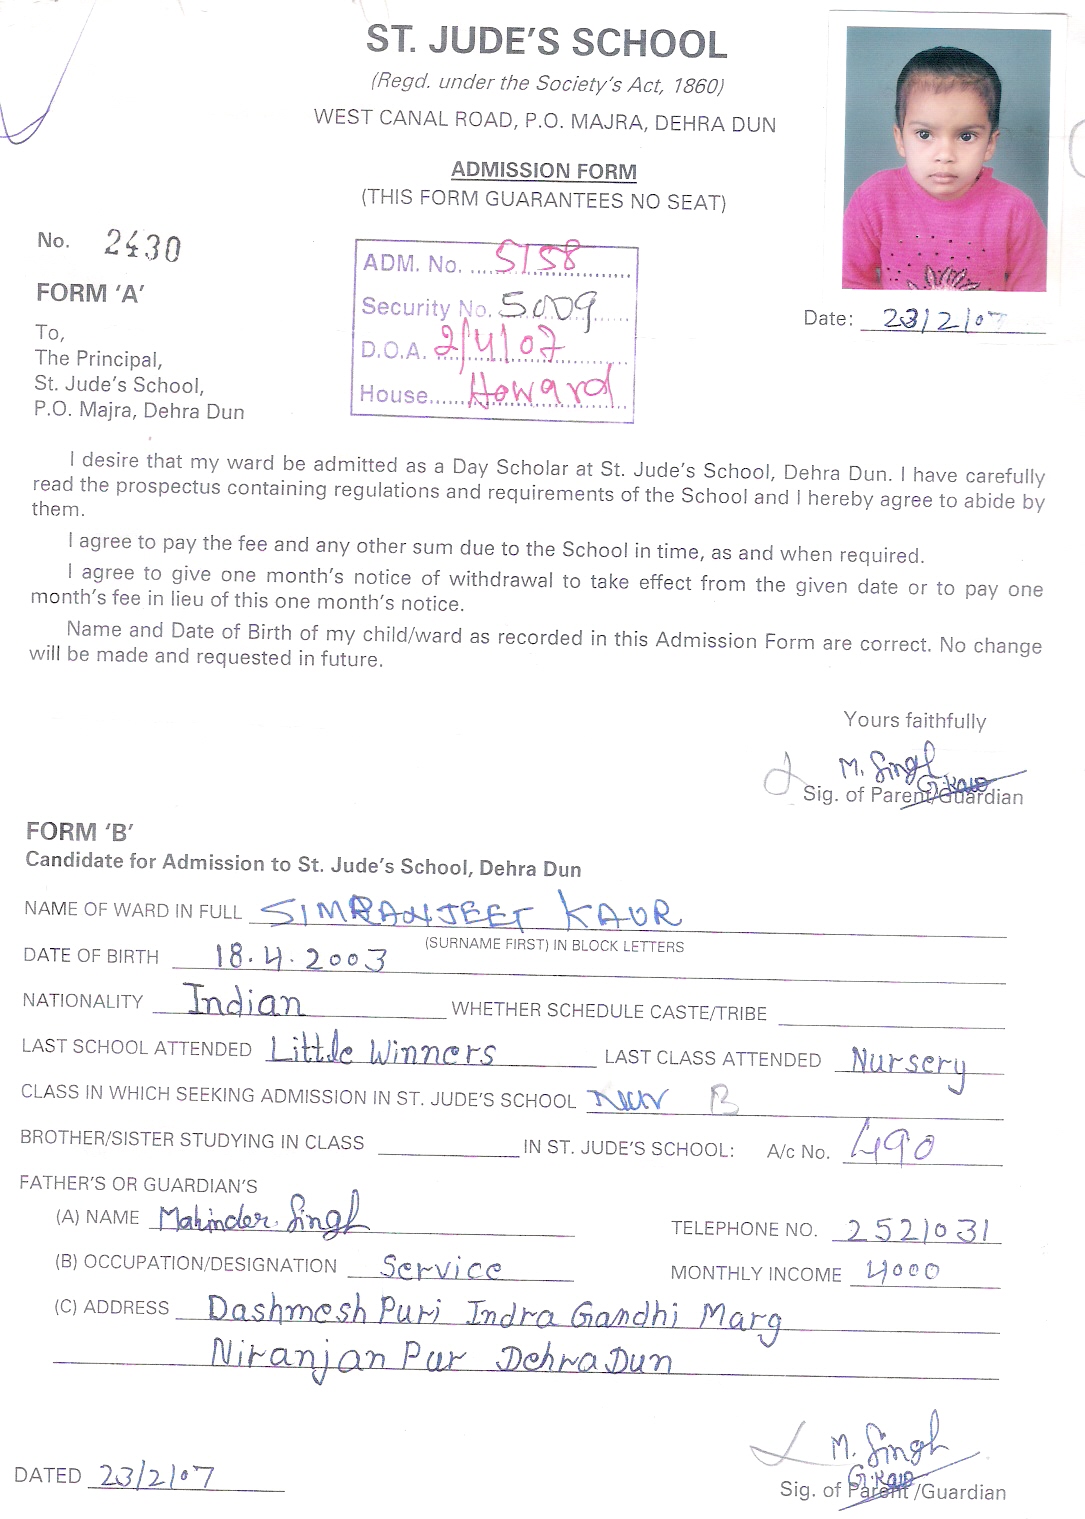 ST. JUDE'S SCHOOL
(Regd. under the Society's Act, 1860)
WEST CANAL ROAD, P.O. MAJRA, DEHRA DUN
ADMISSION FORM
(THIS FORM GUARANTEES NO SEAT)
No. 2430
ADM. No. 5158
Security No. 5009
D.O.A. 2/4/07
House Howard
Date: 23/2/07
FORM 'A'
To,
The Principal,
St. Jude's School,
P.O. Majra, Dehra Dun
I desire that my ward be admitted as a Day Scholar at St. Jude's School, Dehra Dun. I have carefully
read the prospectus containing regulations and requirements of the School and I hereby agree to abide by
them.
I agree to pay the fee and any other sum due to the School in time, as and when required.
I agree to give one month's notice of withdrawal to take effect from the given date or to pay one
month's fee in lieu of this one month's notice.
Name and Date of Birth of my child/ward as recorded in this Admission Form are correct. No change
will be made and requested in future.
Yours faithfully
M. Singh
Sig. of Parent/Guardian
FORM 'B'
Candidate for Admission to St. Jude's School, Dehra Dun
NAME OF WARD IN FULL SIMRANJEET KAUR
(SURNAME FIRST) IN BLOCK LETTERS
DATE OF BIRTH 18.4.2003
NATIONALITY Indian WHETHER SCHEDULE CASTE/TRIBE
LAST SCHOOL ATTENDED Little Winners LAST CLASS ATTENDED Nursery
CLASS IN WHICH SEEKING ADMISSION IN ST. JUDE'S SCHOOL B
BROTHER/SISTER STUDYING IN CLASS IN ST. JUDE'S SCHOOL: A/c No. 490
FATHER'S OR GUARDIAN'S
(A) NAME Mahinder Singh TELEPHONE NO. 2521031
(B) OCCUPATION/DESIGNATION Service MONTHLY INCOME 4000
(C) ADDRESS Dashmesh Puri Indra Gandhi Marg
Niranjan Pur Dehra Dun
M. Singh
DATED 23/2/07
Sig. of Parent/Guardian